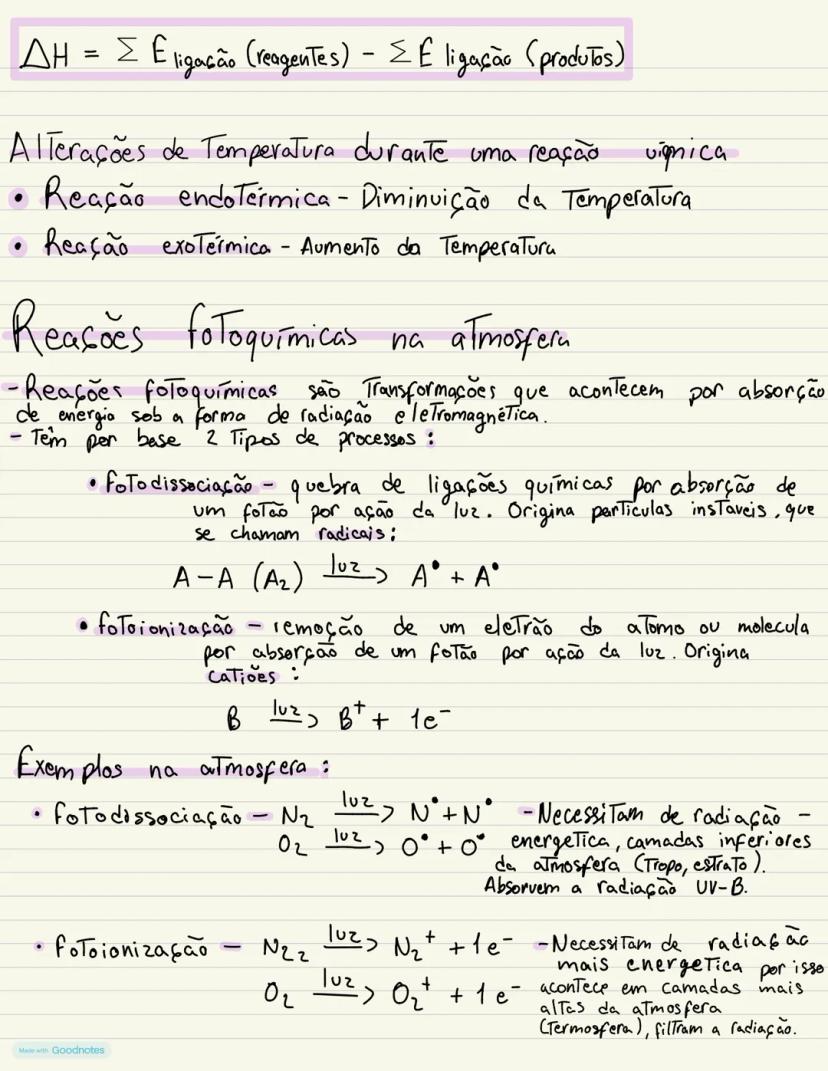 ΔH = Σ E ligação (reagentes) - Σ E ligação (produtos)
Alterações de Temperatura durante uma reação uíqnica
• Reação endotérmica - Diminuição da Temperatura
• Reação exotérmica - Aumento da Temperatura
Reações fotoquímicas na atmosfera
- Reações fotoquímicas são Transformações que acontecem por absorção
de energia sob a forma de radiação eletromagnética.
- Têm por base 2 Tipos de processos :
• fotodissociação - quebra de ligações químicas por absorção de
um fotão por ação da luz. Origina partículas instáveis, que
se chamam radicais:
A-A (A₂) luz → A• + A•
• fotoionização - remoção de um eletrão do atomo ou molecula
por absorção de um fotão por ação da luz. Origina
catiões :
B luz → B⁺ + 1e⁻
Exemplos na atmosfera :
• fotodissociação - N₂ luz → N• + N• - Necessitam de radiação -
O₂ luz → O• + O• energetica, camadas inferiores
da atmosfera (Tropo, estrato).
Absorvem a radiação UV-B.
• fotoionização - N₂₂ luz → N₂⁺ + 1e⁻ - Necessitam de radiação
mais energetica por isso
O₂ luz → O₂⁺ + 1e⁻ acontece em camadas mais
altas da atmosfera
(Termosfera), filtram a radiação.
Made with Goodnotes